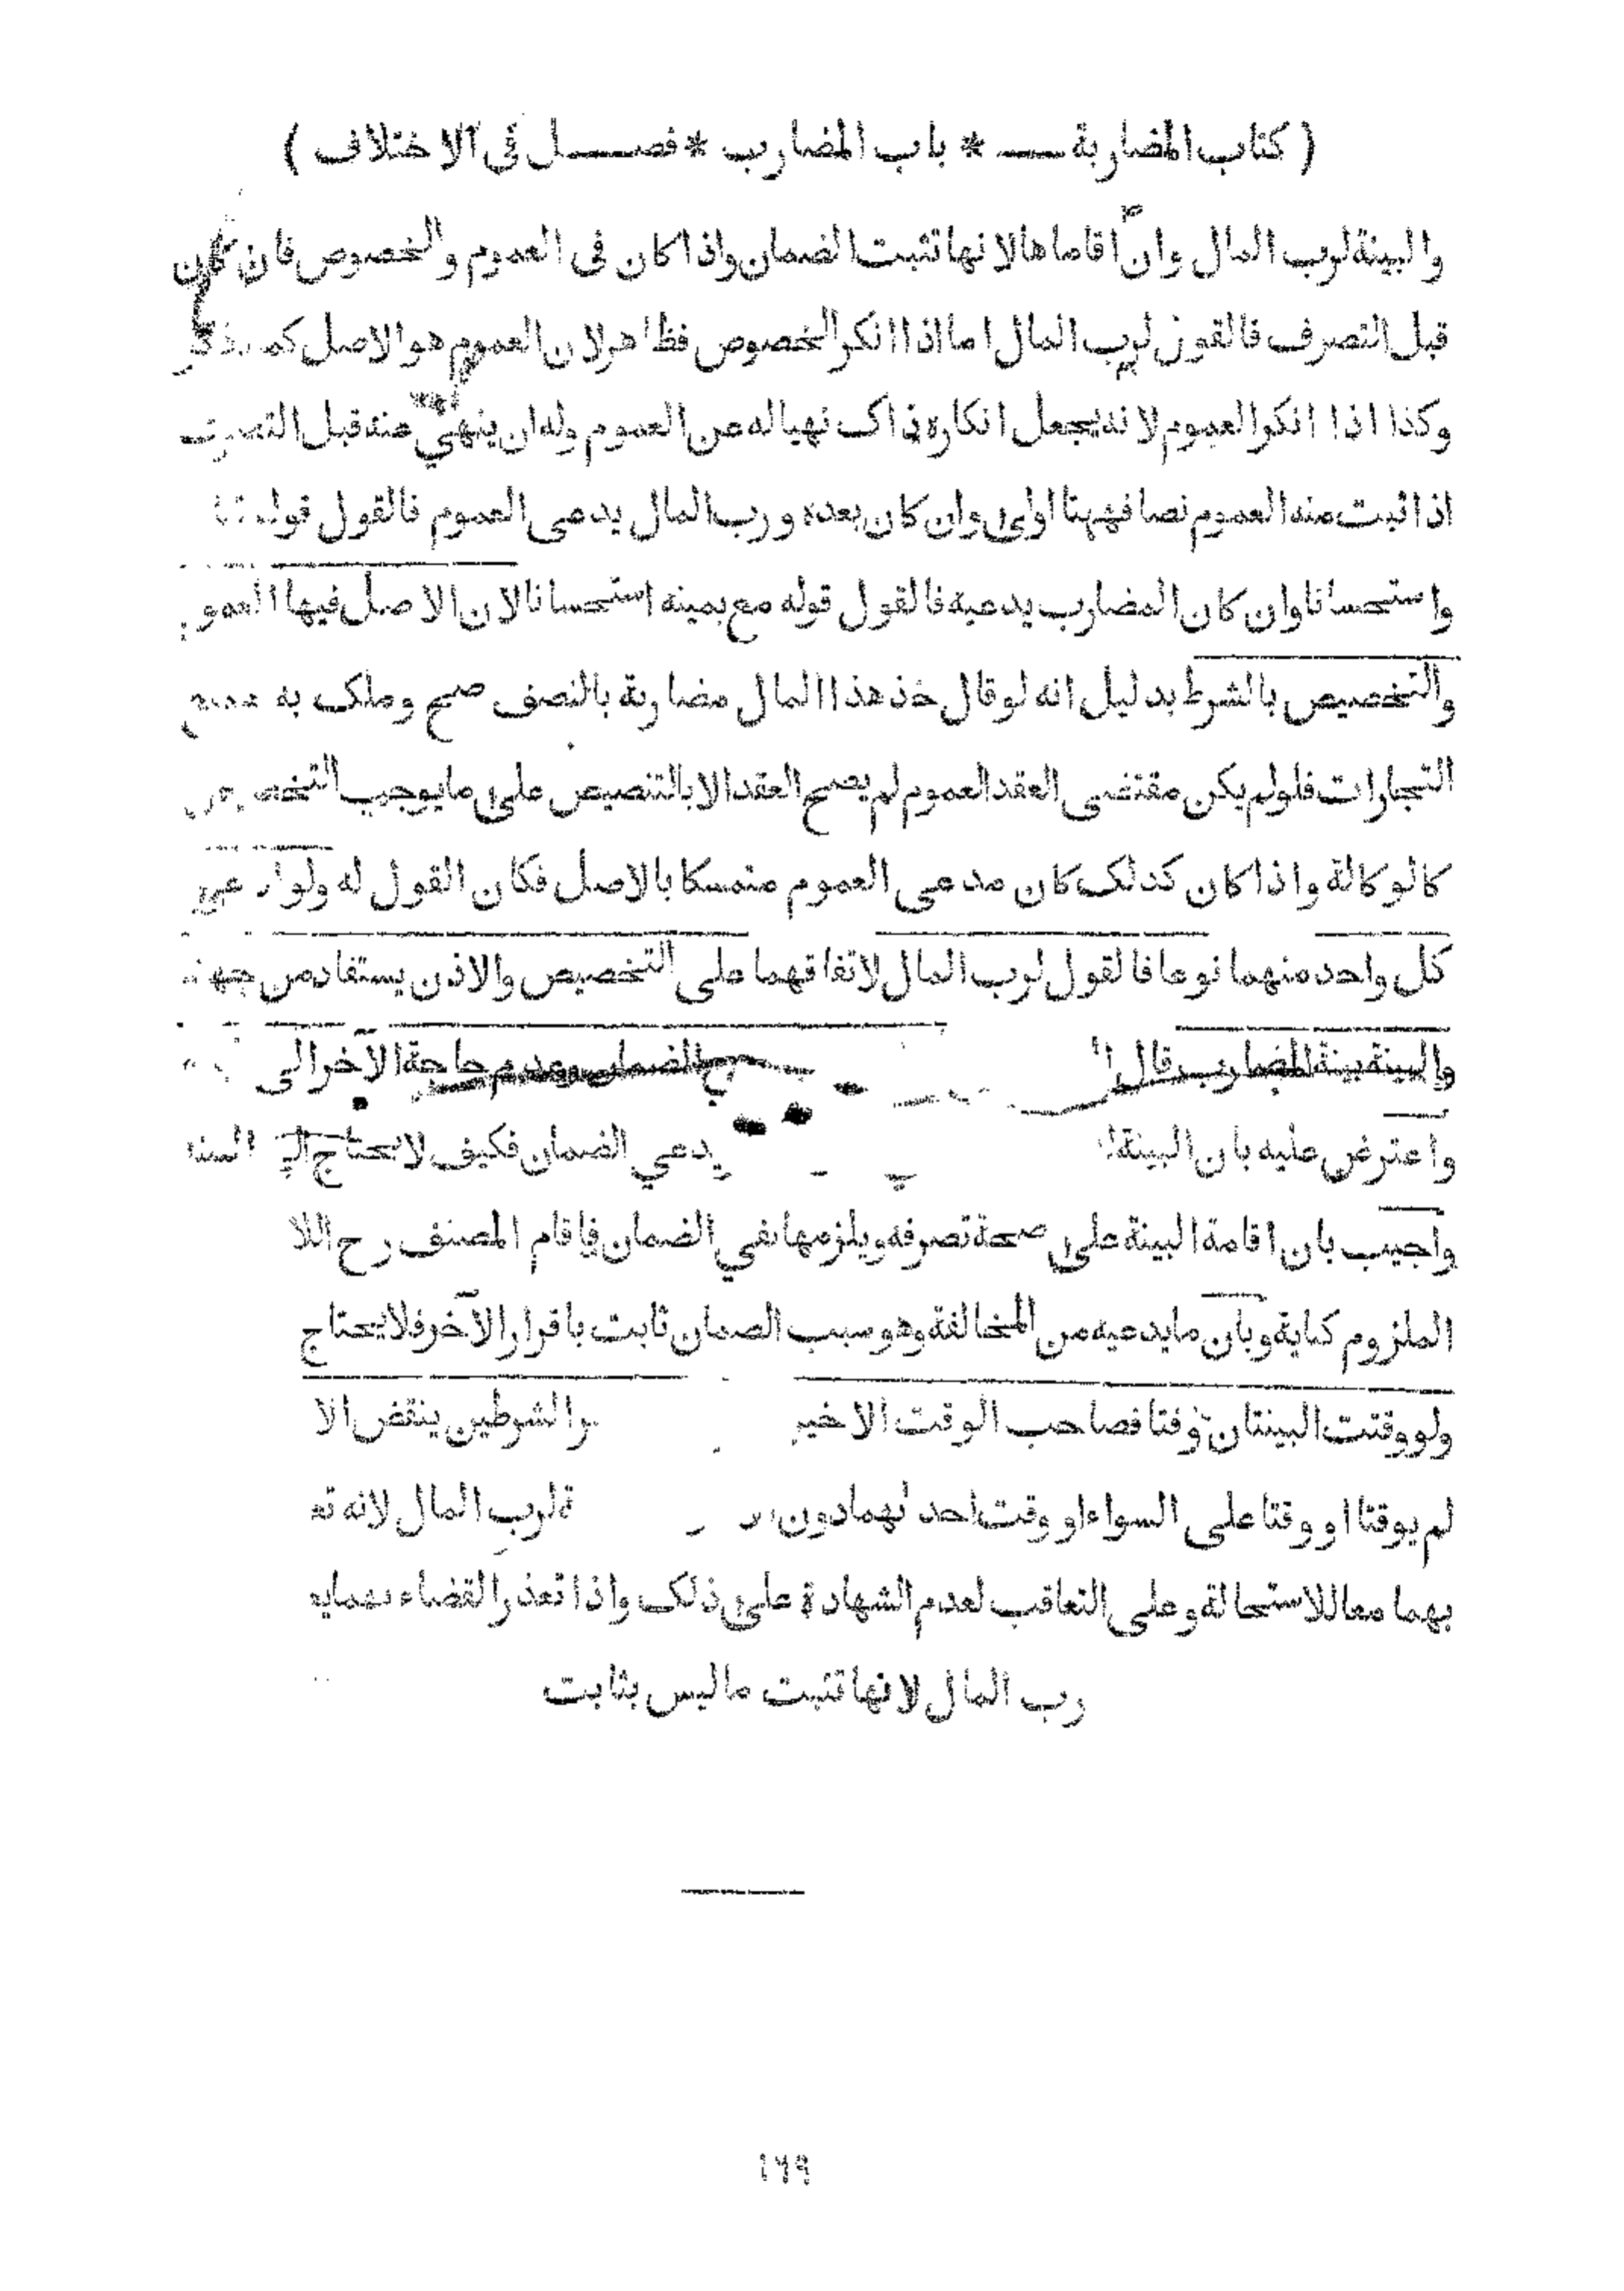 ( كتاب المضاربة * باب المضارب * فصل في الاختلاف )
والبينة لرب المال وان اقاماها لانها تثبت الضمان واذا كان في العموم والخصوص فان كان
قبل التصرف فالقول لرب المال اما اذا انكر الخصوص فظاهر لان العموم هو الاصل كما ذكر
وكذا اذا انكر العموم لانه يجعل انكاره ذاك نهيا له عن العموم وله ان ينهى عنه قبل التصرف
اذا ثبت منه العموم نصا فههنا اولى وان كان بعده ورب المال يدعى العموم فالقول قوله
واستحسانا وان كان المضارب يدعيه فالقول قوله مع يمينه استحسانا لان الاصل فيها العموم
والتخصيص بالشرط بدليل انه لو قال خذ هذا المال مضاربة بالنصف صح وملك به جميع
التجارات فلو لم يكن مقتضى العقد العموم لم يصح العقد الا بالتنصيص على ما يوجب التخصيص
كالوكالة واذا كان كذلك كان مدعى العموم متمسكا بالاصل فكان القول له ولو ادعى
كل واحد منهما نوعا فالقول لرب المال لاتفاقهما على التخصيص والاذن يستفاد من جهته
والبينة بينة المضارب الضمان وعدم حاجة الآخر الى
واعترض عليه بان البينة يدعي الضمان فكيف لا يحتاج
واجيب بان اقامة البينة على صحة تصرفه ويلزمها نفي الضمان فاقام المصنف رح
الملزوم كناية وبان ما يدعيه من المخالفة وهو سبب الضمان ثابت باقرار الآخر فلا يحتاج
ولو وقتت البينتان وقتا فصاحب الوقت الاخير الشرطين ينقض
لم يوقتا او وقتا على السواء او وقت احدلهما دون لرب المال لانه
بهما معا للاستحالة وعلى التعاقب لعدم الشهادة على ذلك واذا تعذر القضاء بهما
رب المال لانها تثبت ما ليس بثابت
١٦٩